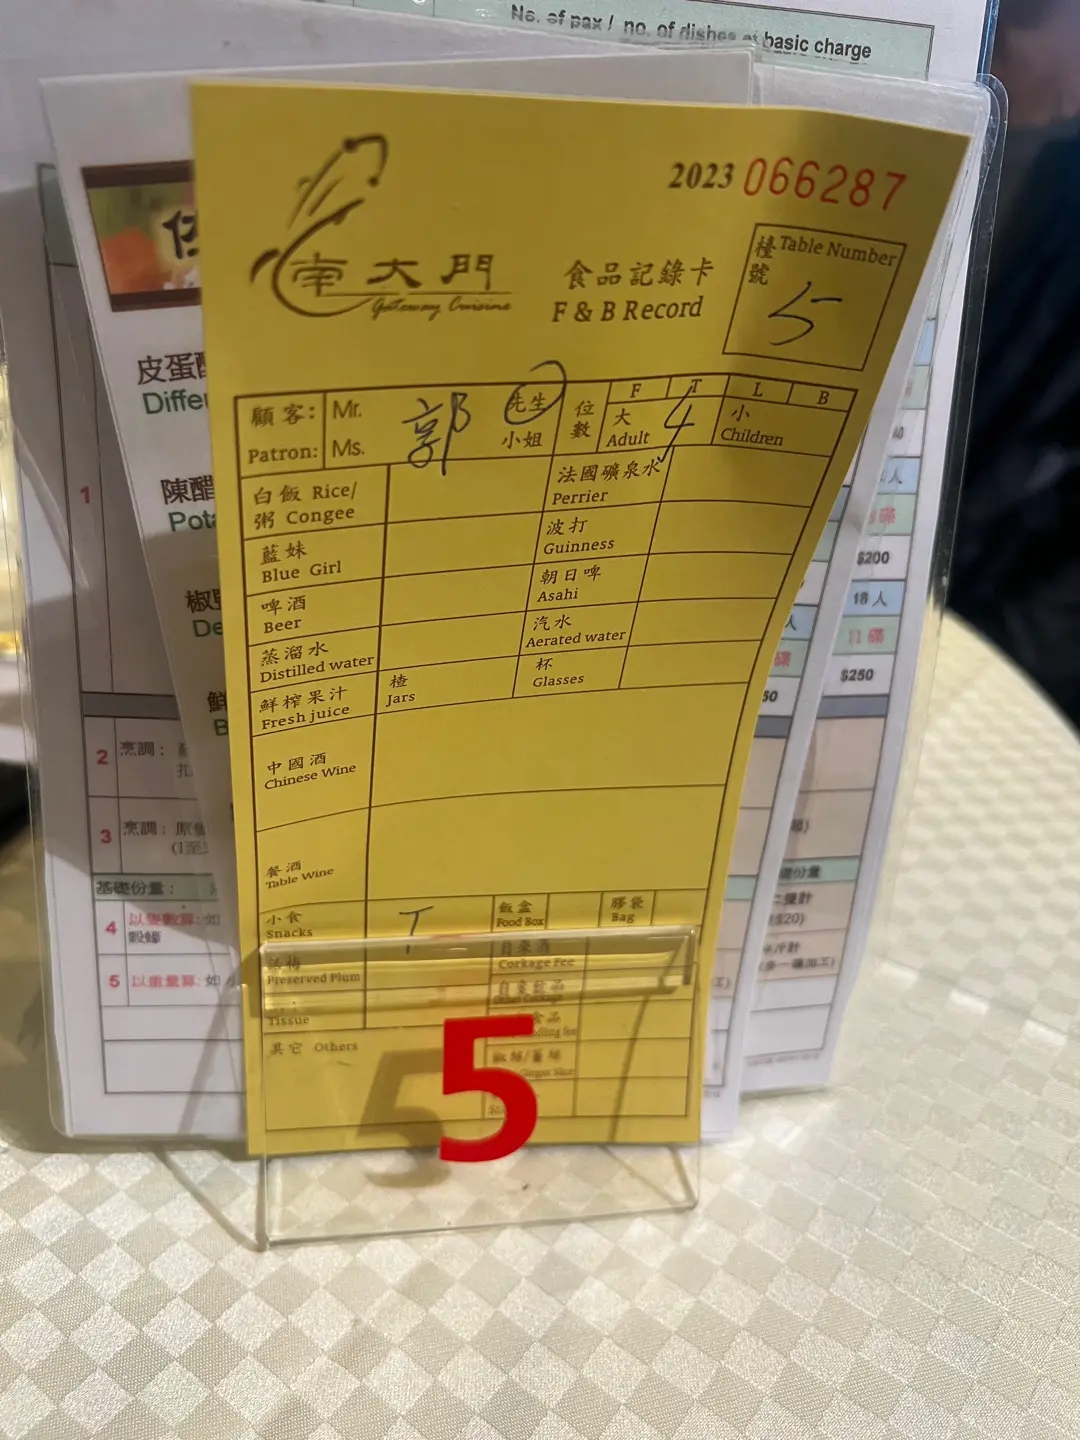 No. of pax / no. of dishes at basic charge
2023 066287
南大門
Gateway Cuisine
食品記錄卡
F & B Record
檯號 Table Number
5
顧客: Mr. 郭 先生
Patron: Ms. 小姐
位數
F T L B
大 Adult 4
小 Children
白飯 Rice/
粥 Congee
法國礦泉水
Perrier
藍妹
Blue Girl
波打
Guinness
啤酒
Beer
朝日啤
Asahi
蒸溜水
Distilled water
汽水
Aerated water
鮮榨果汁
Fresh juice
楂
Jars
杯
Glasses
中國酒
Chinese Wine
餐酒
Table Wine
小食
Snacks
T
飯盒
Food Box
膠袋
Bag
Preserved Plum
自來酒
Corkage Fee
Tissue
食品
其它 Others
5
皮蛋
陳醋
1
2 烹調:
3 烹調:
基礎份量:
4 以隻數算: 如
5 以重量算: 如
$200
18 人
11 碟
$250